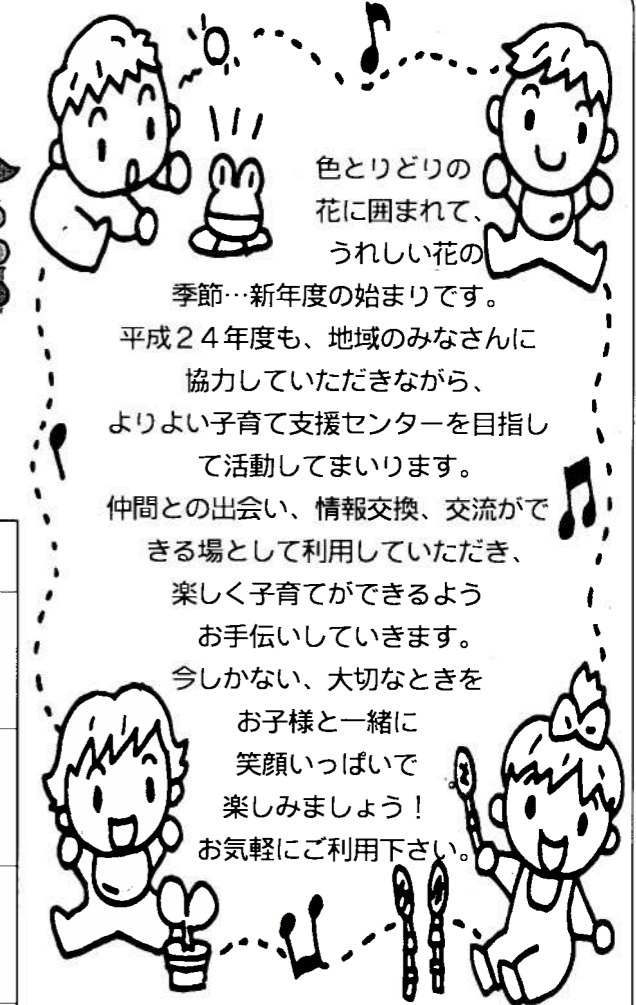 色とりどりの
花に囲まれて、
うれしい花の
季節…新年度の始まりです。
平成２４年度も、地域のみなさんに
協力していただきながら、
よりよい子育て支援センターを目指し
て活動してまいります。
仲間との出会い、情報交換、交流がで
きる場として利用していただき、
楽しく子育てができるよう
お手伝いしていきます。
今しかない、大切なときを
お子様と一緒に
笑顔いっぱいで
楽しみましょう！
お気軽にご利用下さい。